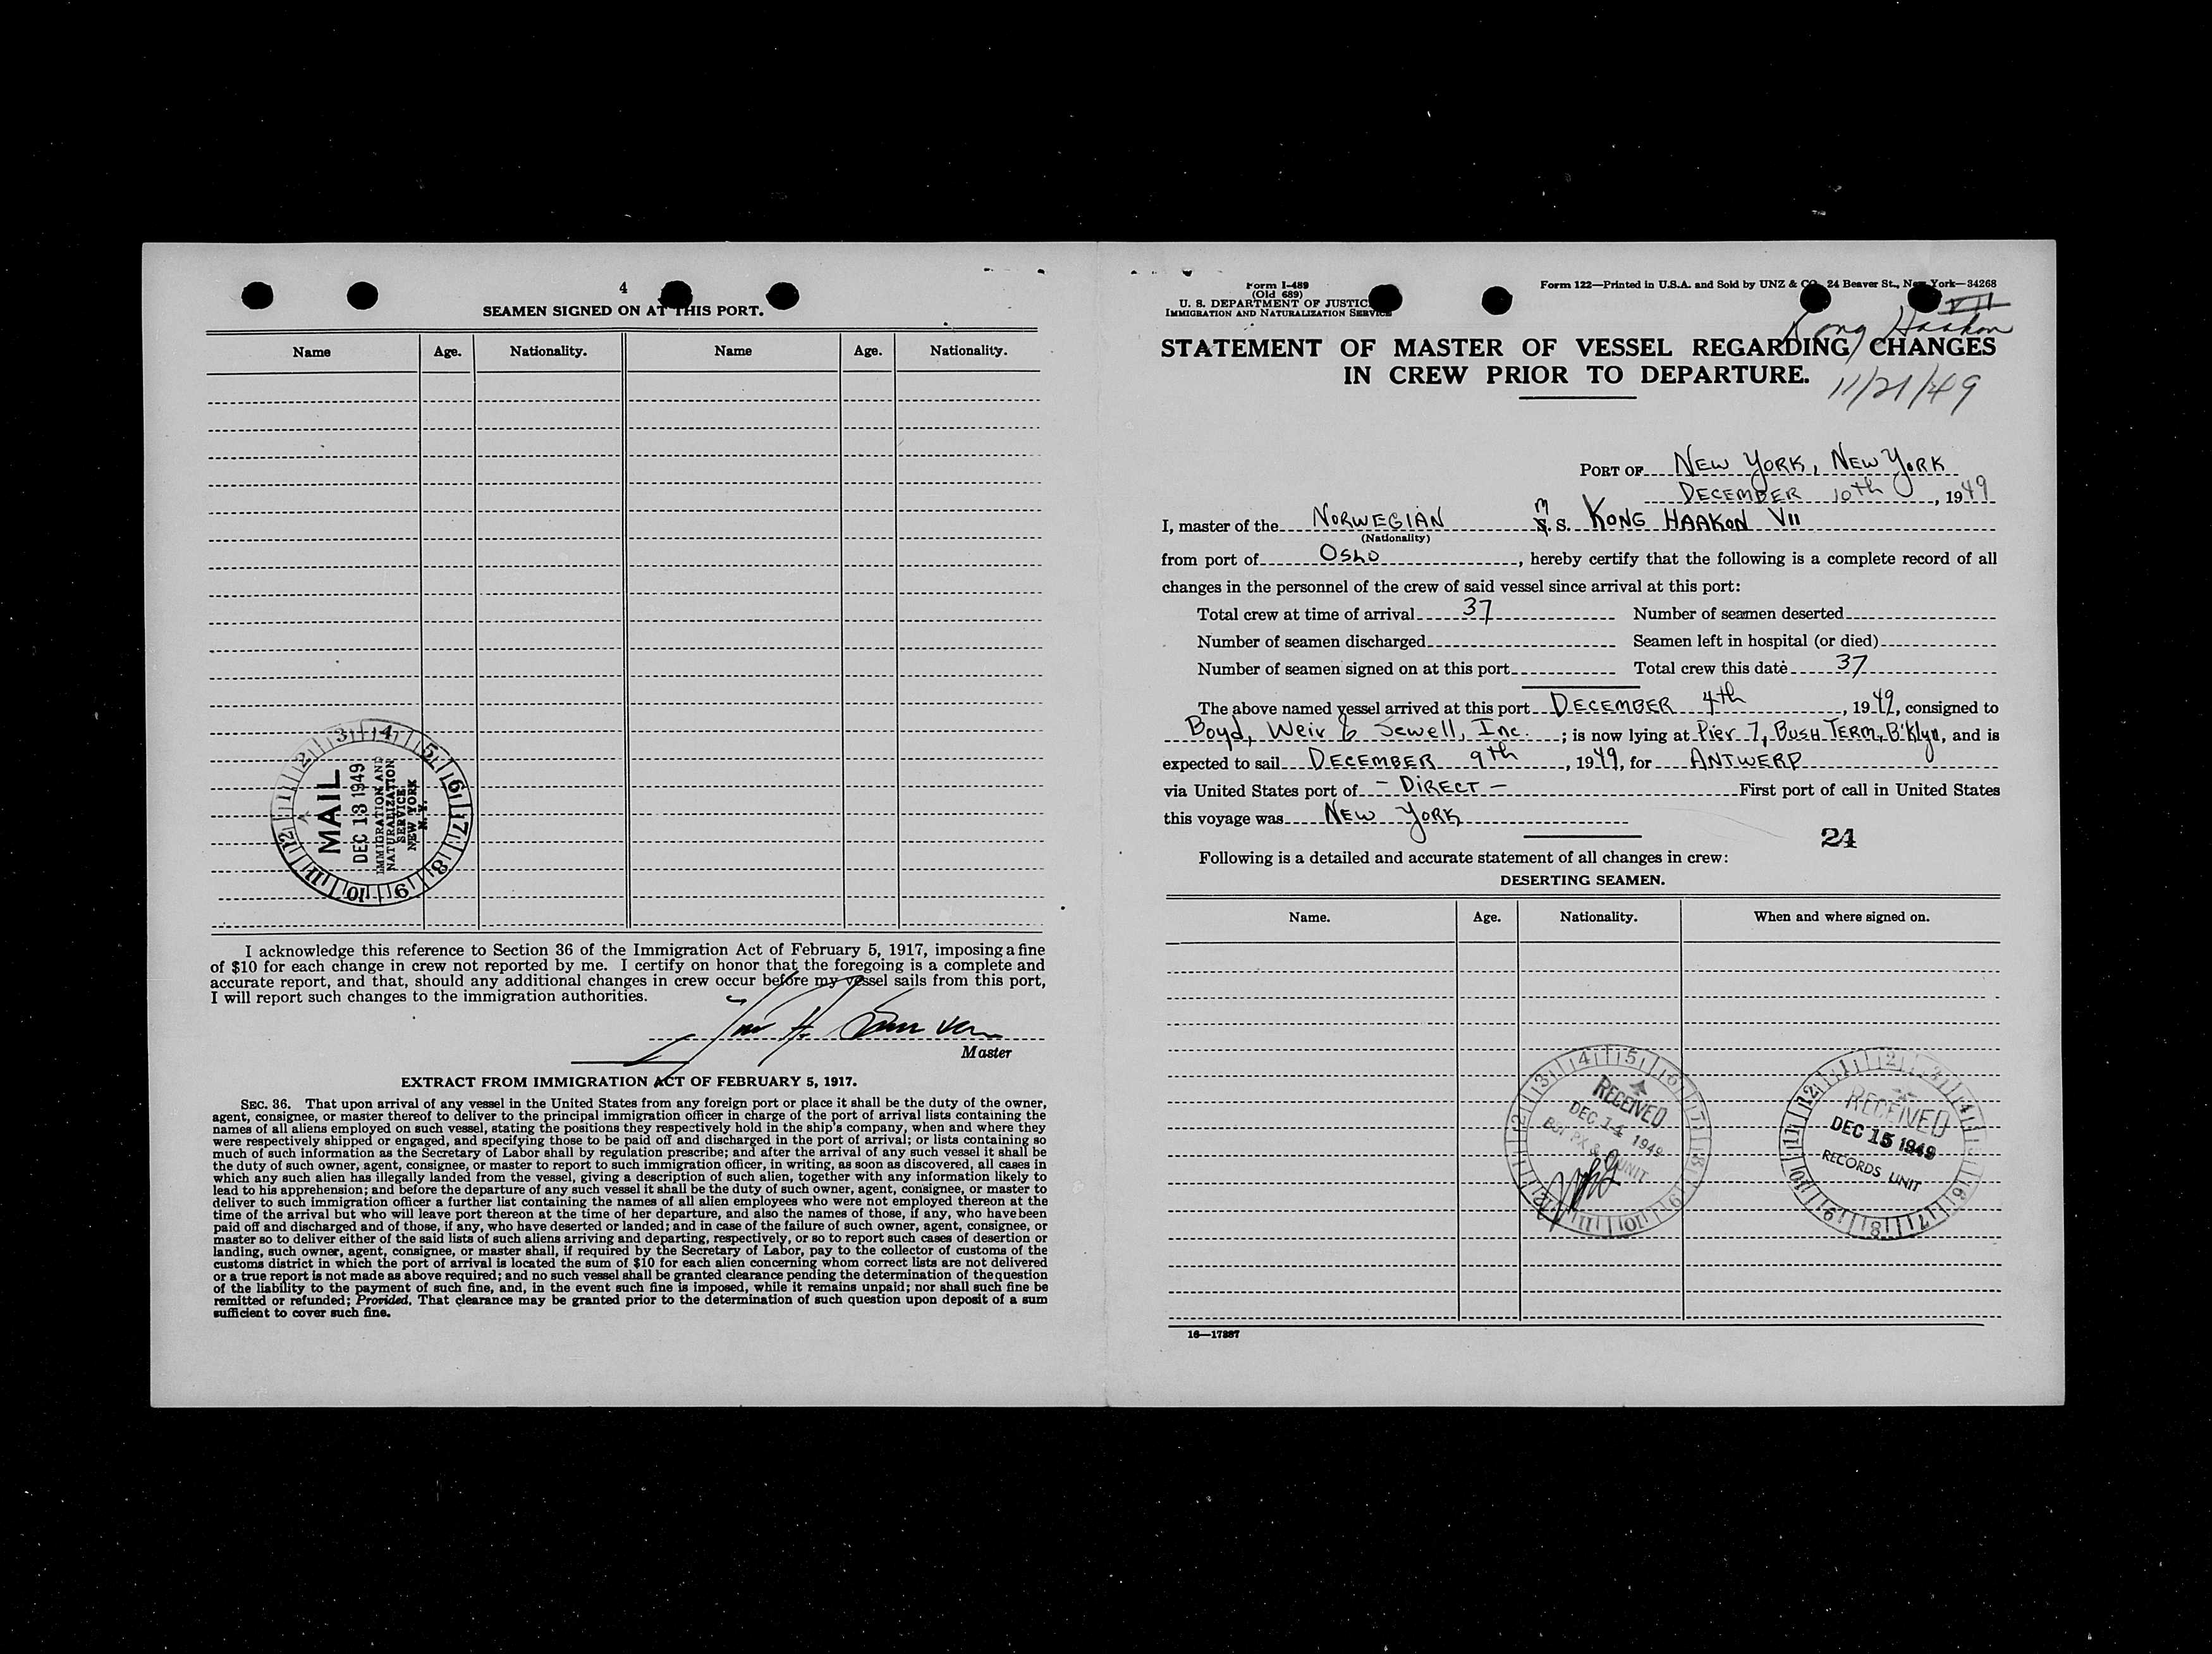 4
SEAMEN SIGNED ON AT THIS PORT.
Name Age. Nationality. Name Age. Nationality.
MAIL
DEC 13 1949
IMMIGRATION AND
NATURALIZATION
SERVICE
NEW YORK
N. Y.
I acknowledge this reference to Section 36 of the Immigration Act of February 5, 1917, imposing a fine
of $10 for each change in crew not reported by me. I certify on honor that the foregoing is a complete and
accurate report, and that, should any additional changes in crew occur before my vessel sails from this port,
I will report such changes to the immigration authorities.
Master
EXTRACT FROM IMMIGRATION ACT OF FEBRUARY 5, 1917.
SEC. 36. That upon arrival of any vessel in the United States from any foreign port or place it shall be the duty of the owner,
agent, consignee, or master thereof to deliver to the principal immigration officer in charge of the port of arrival lists containing the
names of all aliens employed on such vessel, stating the positions they respectively hold in the ship's company, when and where they
were respectively shipped or engaged, and specifying those to be paid off and discharged in the port of arrival; or lists containing so
much of such information as the Secretary of Labor shall by regulation prescribe; and after the arrival of any such vessel it shall be
the duty of such owner, agent, consignee, or master to report to such immigration officer, in writing, as soon as discovered, all cases in
which any such alien has illegally landed from the vessel, giving a description of such alien, together with any information likely to
lead to his apprehension; and before the departure of any such vessel it shall be the duty of such owner, agent, consignee, or master to
deliver to such immigration officer a further list containing the names of all alien employees who were not employed thereon at the
time of the arrival but who will leave port thereon at the time of her departure, and also the names of those, if any, who have been
paid off and discharged and of those, if any, who have deserted or landed; and in case of the failure of such owner, agent, consignee, or
master so to deliver either of the said lists of such aliens arriving and departing, respectively, or so to report such cases of desertion or
landing, such owner, agent, consignee, or master shall, if required by the Secretary of Labor, pay to the collector of customs of the
customs district in which the port of arrival is located the sum of $10 for each alien concerning whom correct lists are not delivered
or a true report is not made as above required; and no such vessel shall be granted clearance pending the determination of the question
of the liability to the payment of such fine, and, in the event such fine is imposed, while it remains unpaid; nor shall such fine be
remitted or refunded; Provided, That clearance may be granted prior to the determination of such question upon deposit of a sum
sufficient to cover such fine.
Form I-489
(Old 689)
U. S. DEPARTMENT OF JUSTICE
IMMIGRATION AND NATURALIZATION SERVICE
Form 122—Printed in U.S.A. and Sold by UNZ & CO. 24 Beaver St., New York—34268
VII
Kong Haakon
STATEMENT OF MASTER OF VESSEL REGARDING CHANGES
IN CREW PRIOR TO DEPARTURE.
11/21/49
PORT OF NEW YORK, NEW YORK
DECEMBER 10th, 1949
I, master of the NORWEGIAN M. S. KONG HAAKON VII
(Nationality)
from port of OSLO, hereby certify that the following is a complete record of all
changes in the personnel of the crew of said vessel since arrival at this port:
Total crew at time of arrival 37 Number of seamen deserted
Number of seamen discharged Seamen left in hospital (or died)
Number of seamen signed on at this port Total crew this date 37
The above named vessel arrived at this port DECEMBER 4th, 1949, consigned to
Boyd, Weir & Sewell, Inc.; is now lying at Pier 7, BUSH TERM, B'Klyn, and is
expected to sail DECEMBER 9th, 1949, for ANTWERP
via United States port of - DIRECT - First port of call in United States
this voyage was NEW YORK
24
Following is a detailed and accurate statement of all changes in crew:
DESERTING SEAMEN.
Name. Age. Nationality. When and where signed on.
RECEIVED
DEC 14 1949
UNIT
RECEIVED
DEC 15 1949
RECORDS UNIT
16—17887